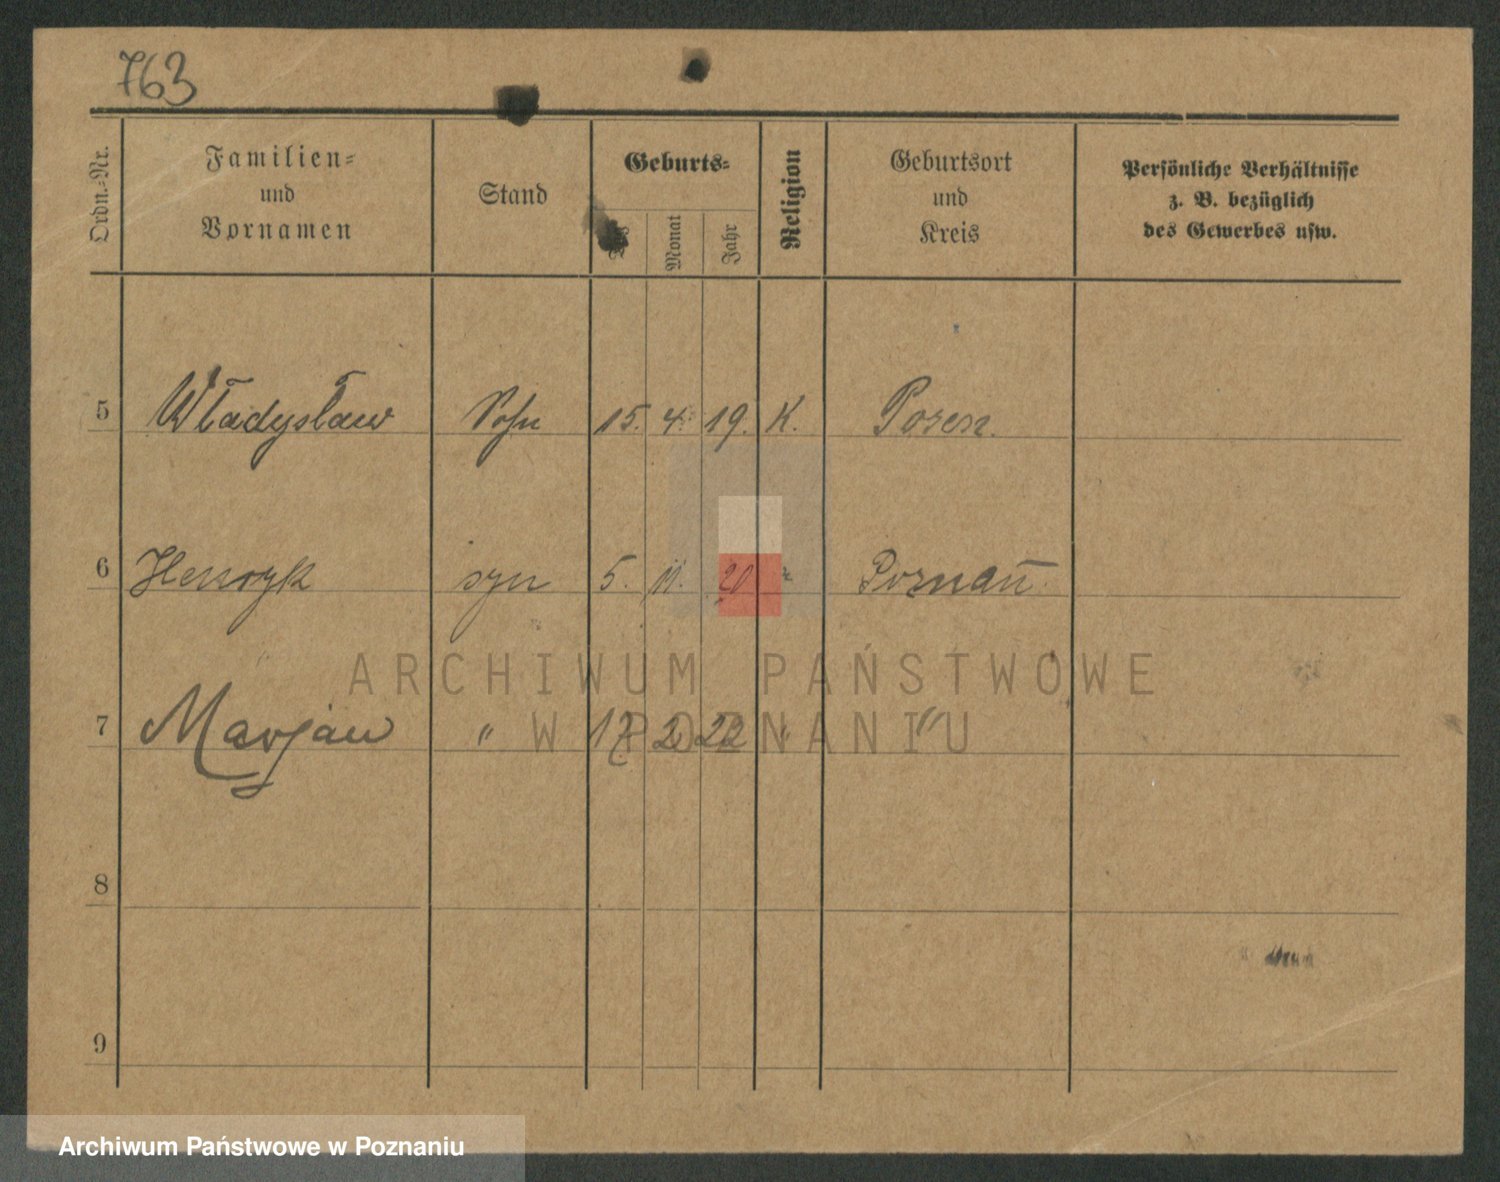 763
Ordn.-Nr.
Familien-
und
Vornamen
Stand
Geburts-
Monat
Jahr
Religion
Geburtsort
und
Kreis
Persönliche Verhältnisse
z. B. bezüglich
des Gewerbes usw.
5 Władysław Sohn 15. 4. 19. K. Posen.
6 Henryk syn 5. 11. 20 Poznań.
ARCHIWUM PAŃSTWOWE
W POZNANIU
7 Marjan " 17 2 22 " "
8
9
Archiwum Państwowe w Poznaniu